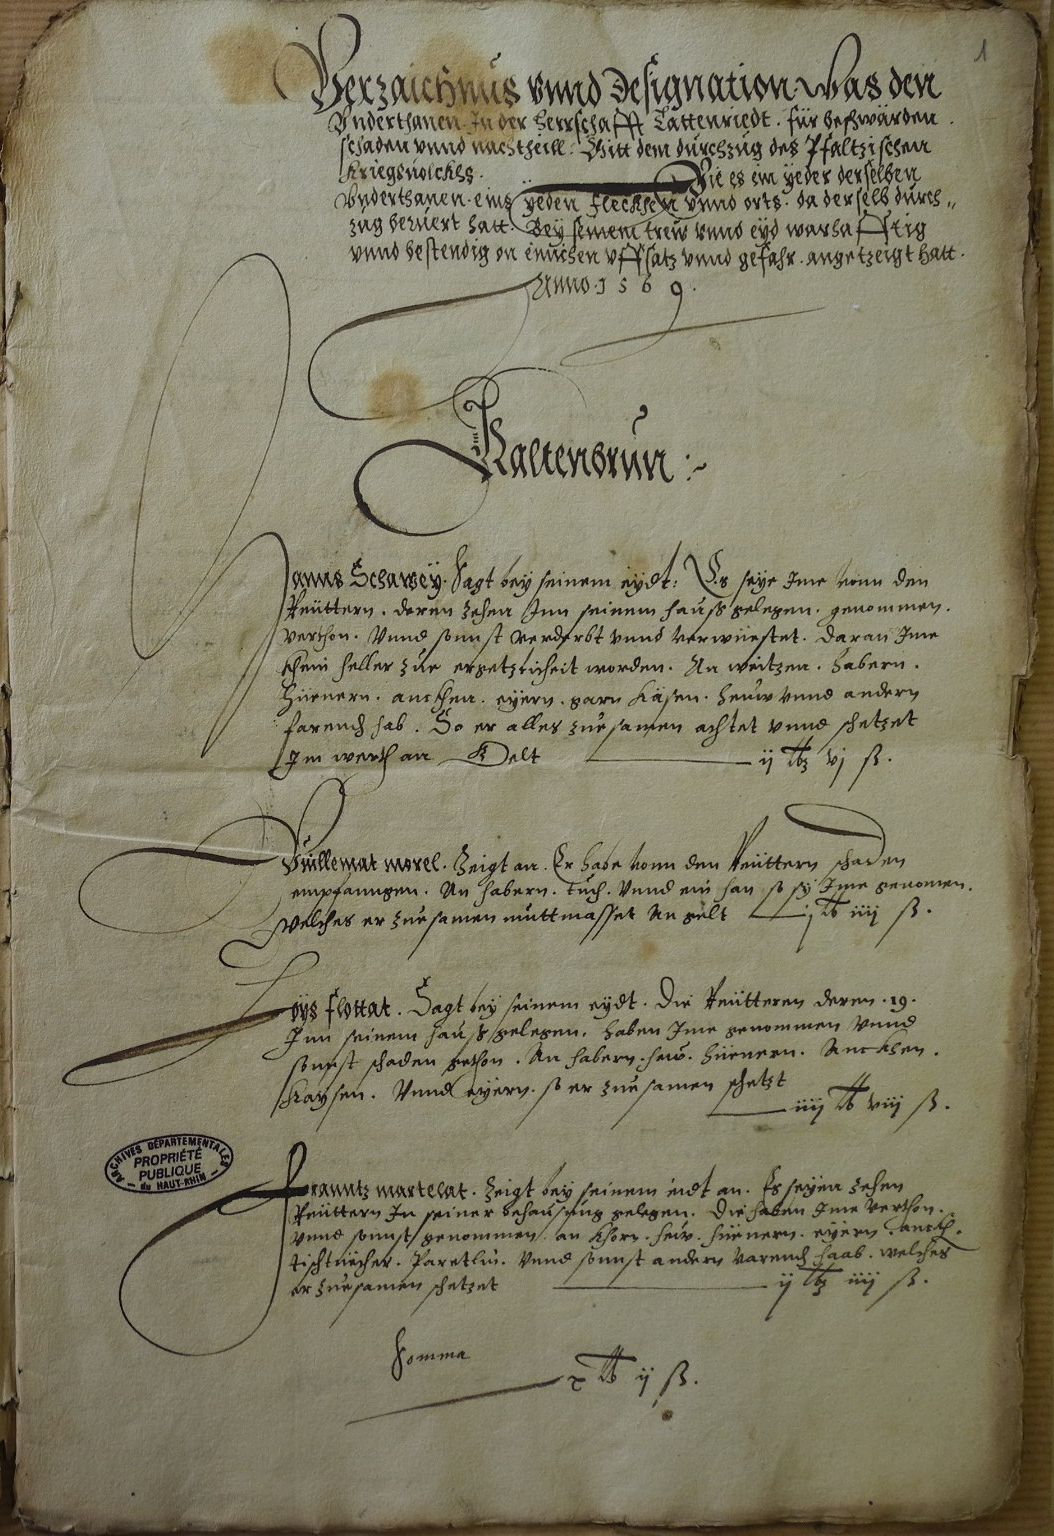 1
Verzaichnus vnnd Designation Was den
Vnderthanen In der Herrschafft Tattenriedt. für beschwärden
schaden vnnd nachtheill. Mitt dem durchzug des Pfaltzischen
Kriegsuolckhs.
Wie es ein yeder derselben
Vnderthanen eins yeden Fleckhen vnnd orts. da derselb durch„
zug beruert hatt. Bey seinem trew vnnd eyd warhafftig
vnnd bestendig on einichen vffsatz vnnd gefahr. angetzeigt hatt.
Anno. 1569.
Kaltenbrun :~
Hanns Schawey. Sagt bey seinem eydt: Es seye Ime vonn den
Reüttern. deren zehen Inn seinem hauss gelegen. genommen.
verthon. Vnnd sonnst verderbt vnnd verwüestet. daran Ime
khein heller zue ergetzlicheit worden. An weitzen. habern.
hüenern. anckhen. eyern. garn Käsen. heuw vnnd andern
farend hab. So er alles zuesamen achtet vnnd schetzet
Im werth an Gelt ij lb vj ß.
Vuillemat morel. Zeigt an. Er habe vonn den Reüttern schaden
empfanngen. An habern. tuch. Vnnd ein han so sy Ime genomen.
welches er zuesamen muttmasset An gelt j lb iiij ß.
Loys flottat. Sagt bey seinem eydt. Die Reütteren deren .19.
Inn seinem hauss gelegen. haben Ime genommen Vnnd
sonnst schaden gethon. An habern. hew. hüenern. Anckhen.
Kaysen. Vnnd eyern. so er zuesamen schetzt
iiij lb viij ß.
Franntz martelat. Zeigt bey seinem eidt an. Es seyen zehen
Reüttern In seiner behausung gelegen. Die haben Ime verthon.
vnnd sonnst genommen. an Khorn. hew. hüenern. eyern. anckh.
tischtüecher. Vnnd sonnst andern varend haab. welches
er zuesamen schetzet ij lb iiij ß.
Somma
x lb ij ß.
ARCHIVES DÉPARTEMENTALES
PROPRIÉTÉ
PUBLIQUE
du HAUT-RHIN